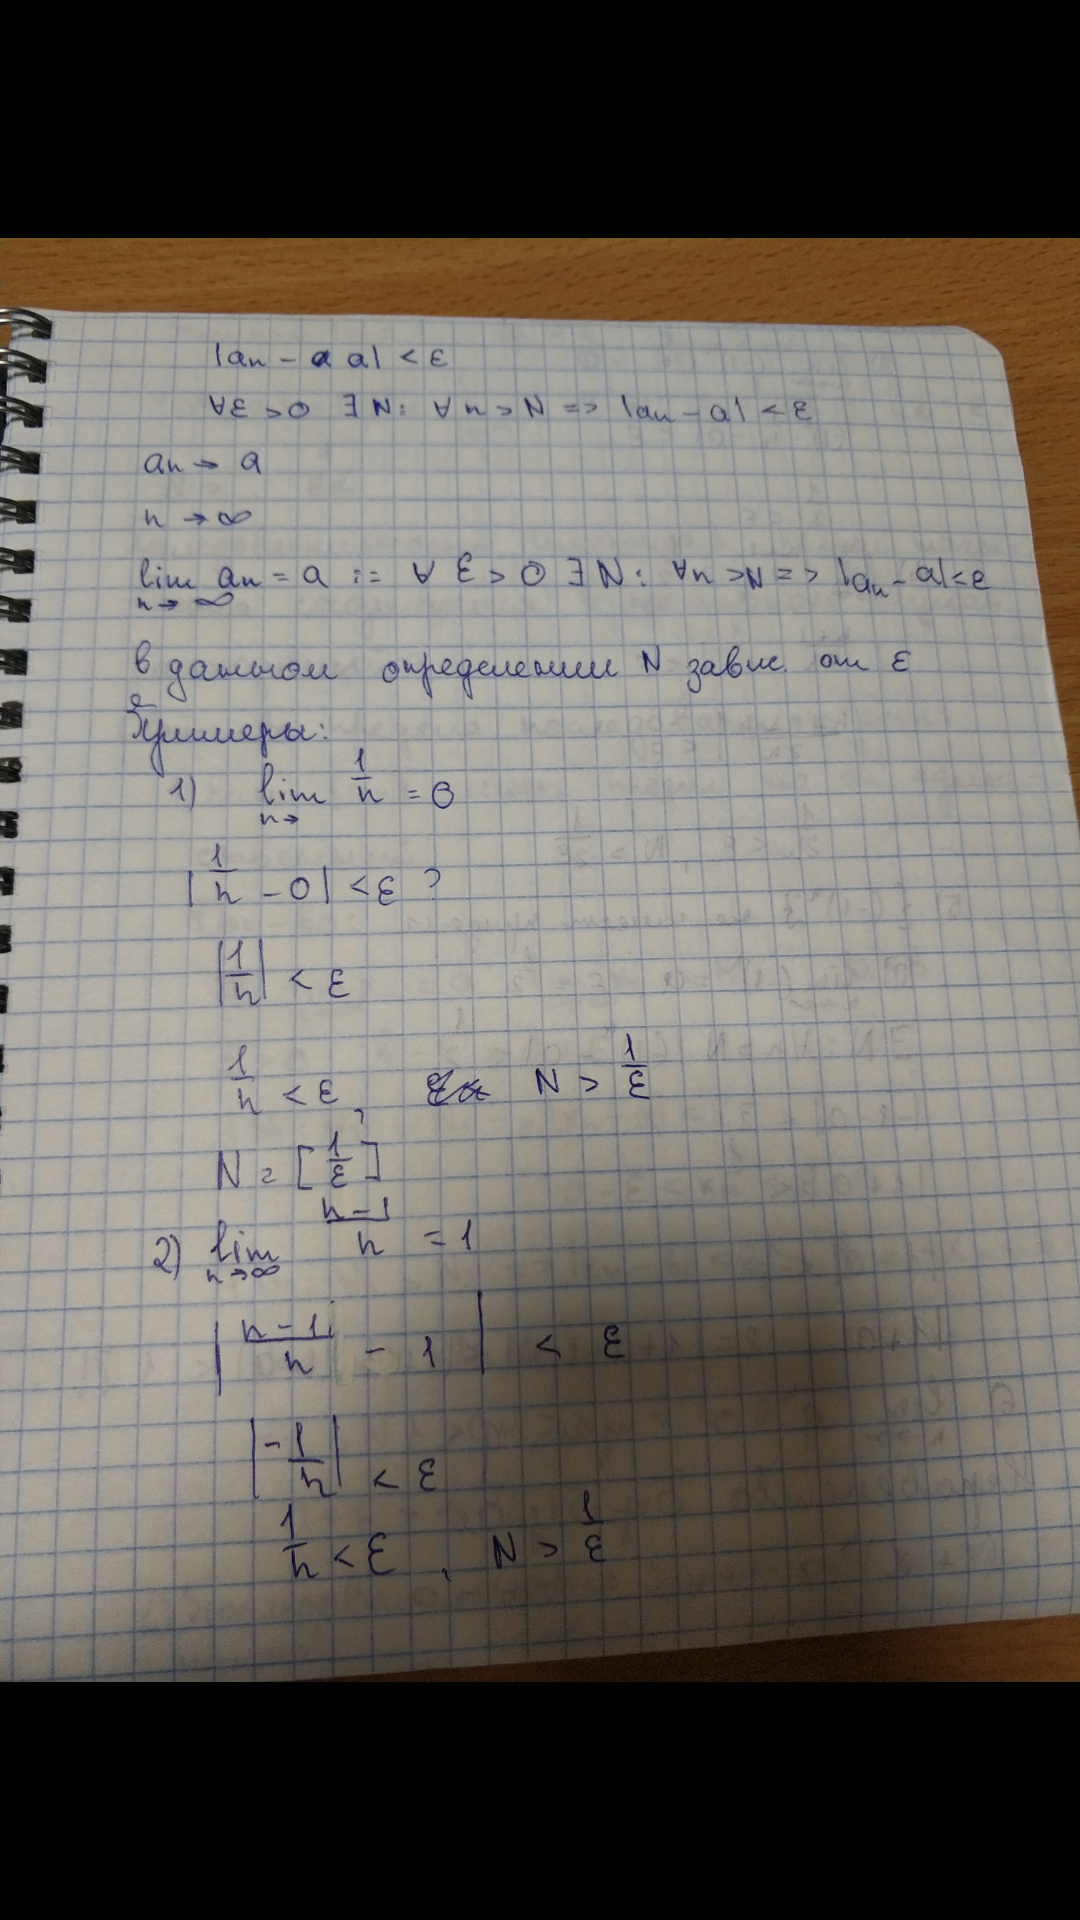 |aₙ - a a| < ε
∀ε > 0 ∃ N: ∀ n > N => |aₙ - a| < ε
aₙ → a
n → ∞
lim aₙ = a := ∀ ε > 0 ∃ N: ∀n > N => |aₙ - a| < ε
n → ∞
в данном определении N завис. от ε
Примеры:
1) lim 1/n = 0
n→
|1/n - 0| < ε ?
|1/n| < ε
1/n < ε, N > 1/ε
N = [1/ε]
2) lim (n-1)/n = 1
n→∞
|(n-1)/n - 1| < ε
|-1/n| < ε
1/n < ε, N > 1/ε